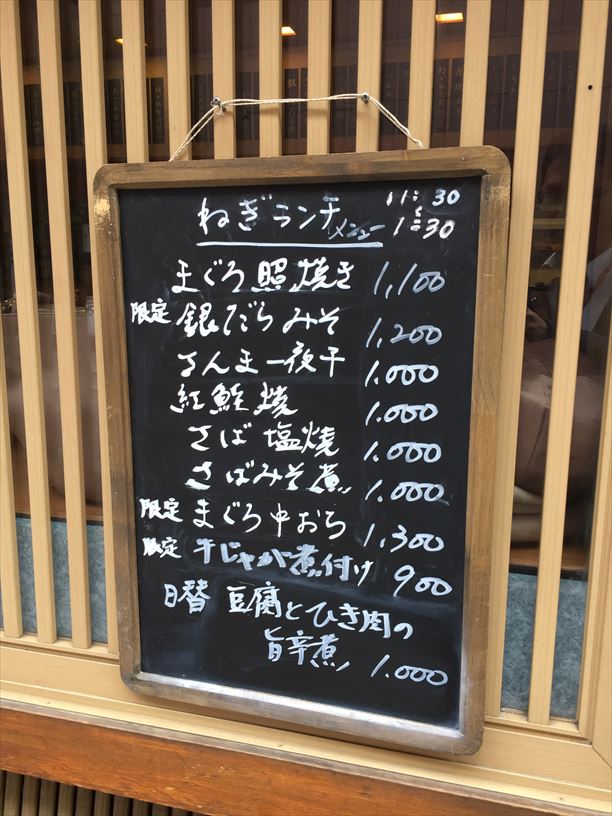 ねぎランチメニュー 11:30
〜
1:30
まぐろ照焼き 1,100
限定 銀だらみそ 1,200
さんま一夜干 1.000
紅鮭焼 1.000
さば塩焼 1.000
さばみそ煮 1.000
限定 まぐろ中おち 1.300
限定 牛じゃが煮付け 900
日替 豆腐とひき肉の
旨辛煮 1.000